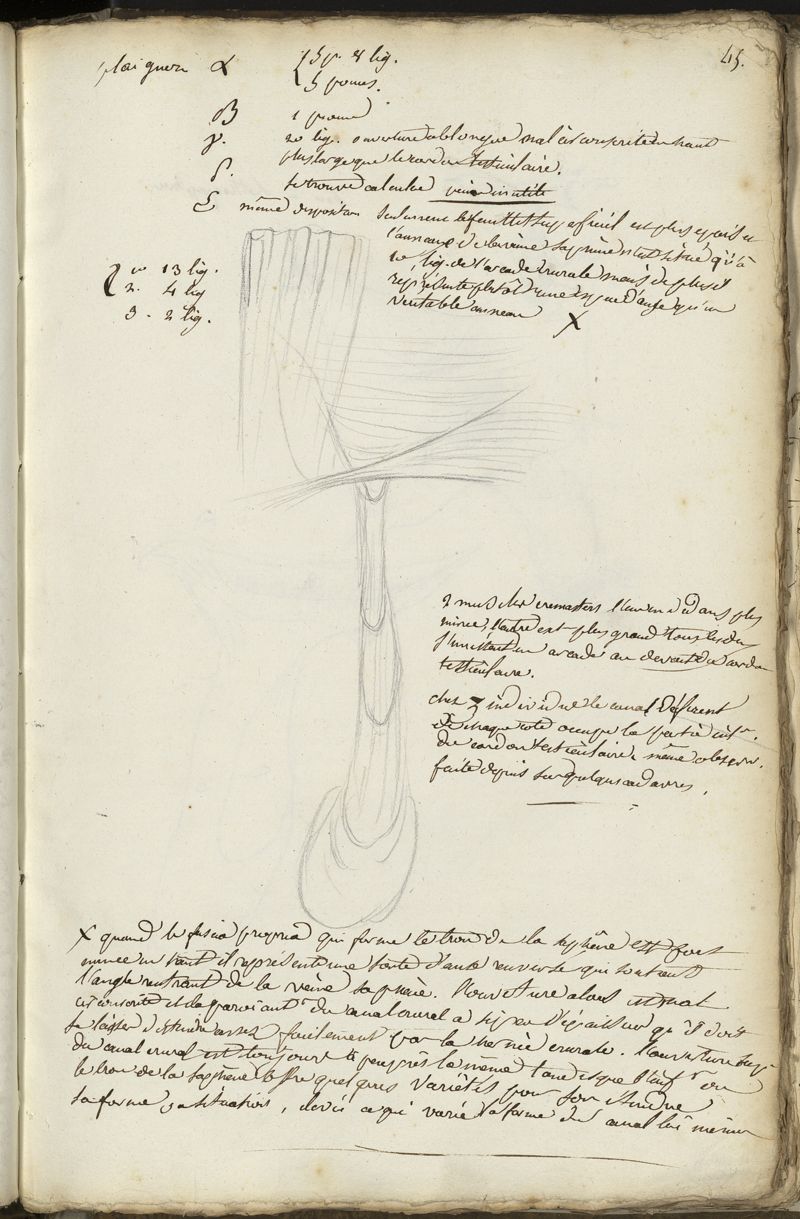 45.
α { 3 p. 8 lig.
3 pouces.
β 1 pouce
γ. 20 lig. ouverture oblongue mal circonscrite en haut
plus large que le cordon testiculaire.
δ. se trouve calculée
ε même disposition seulement le feuillet superficiel est plus épais et
l'anneau de la veine saphène n'est situé qu'à
10 lig. de l'arcade crurale mais de plus il
représente plutôt une espèce d'anse qu'un
véritable anneau X
{ 1º 13 lig.
2. 4 lig
3 - 2 lig.
2 muscles cremasters l'un en dedans plus
mince, l'autre est plus grand tous les deux
s'unissent en arcade au devant du cordon
testiculaire.
chez 3 individus le canal déférent
de chaque coté occupe la partie
du cordon testiculaire, même observ.
faite depuis sur quelques cadavres.
X quand le fascia propria qui forme le trou de la saphène est fort
mince en haut il représente une sorte d'anse renversée qui soutient
l'angle rentrant de la veine saphène. l'ouverture alors est mal
circonscrite et la paroi ant.r du canal crural a si peu d'épaisseur qu'il doit
se laisser distendre assez facilement par la hernie crurale. l'ouverture sup.r
du canal crural est toujours à peu près la même tandis que l'inf.r ou
le trou de la saphène offre quelques variétés pour son étendue
sa forme sa situation, de là ce qui varie la forme du canal lui même